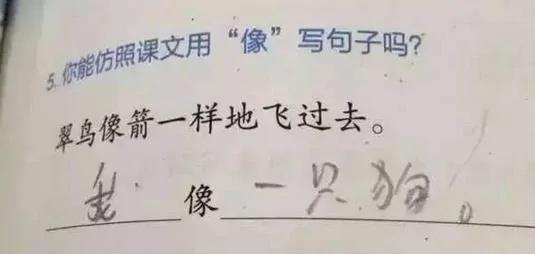 5.你能仿照课文用“像”写句子吗？
翠鸟像箭一样地飞过去。
我像一只狗。